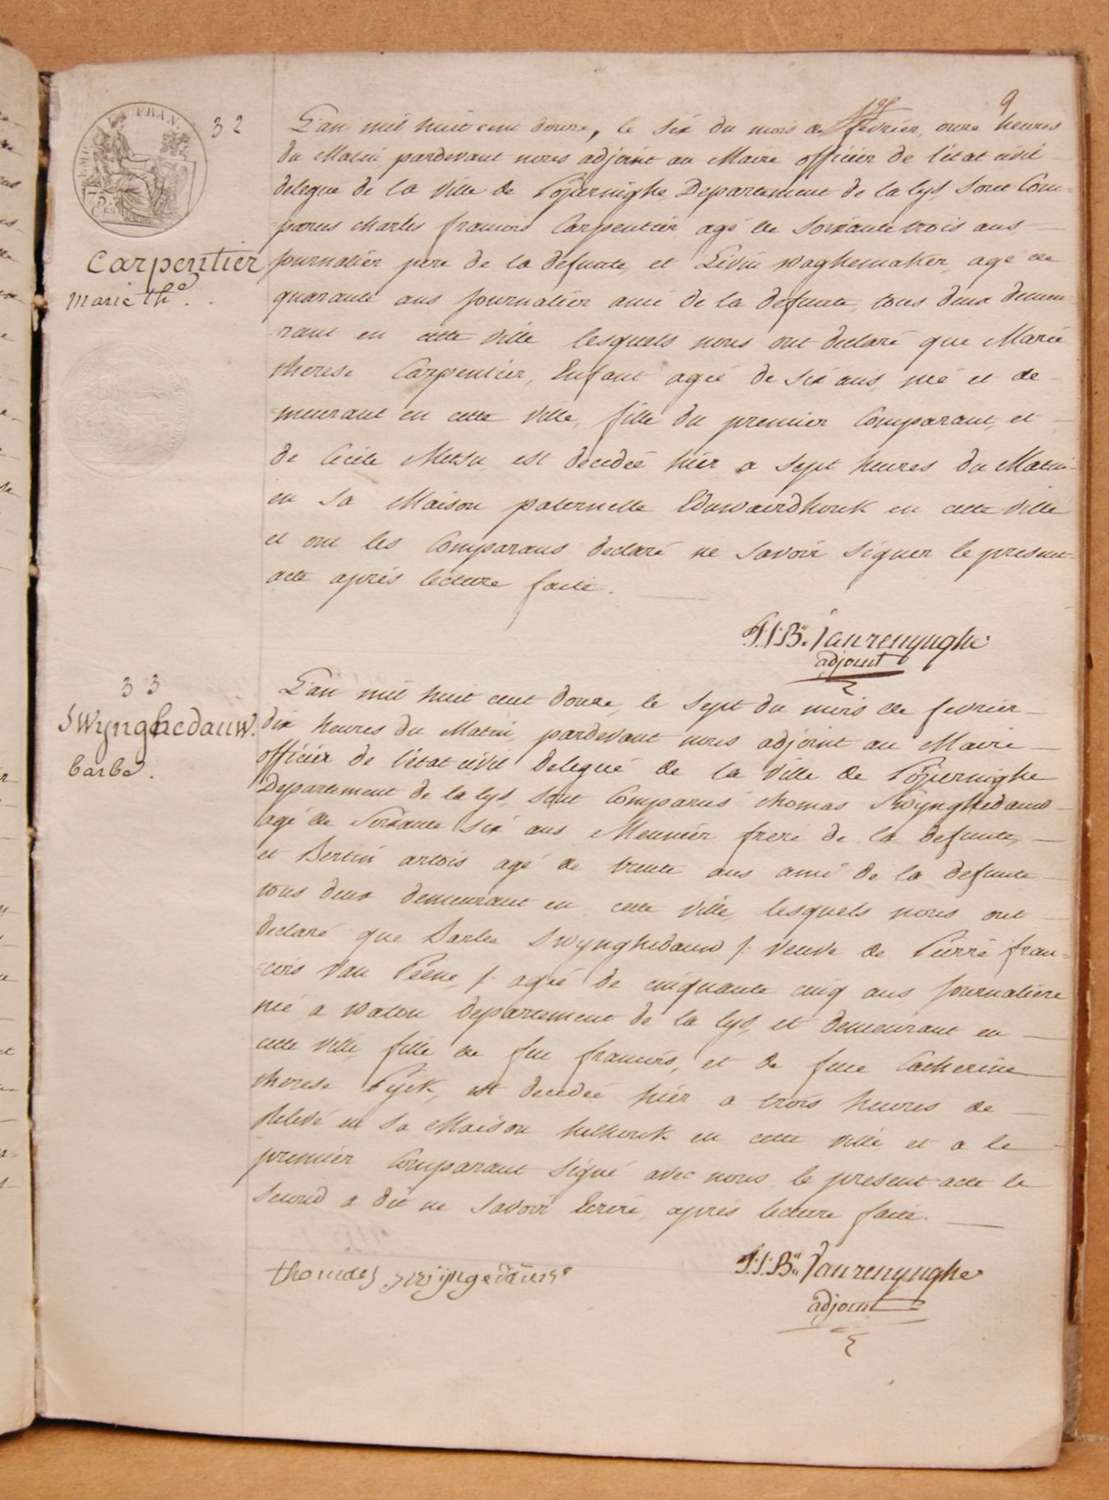 9
32
L'an mil huit cent douze, le six du mois de fevrier, onze heures
du Matin pardevant nous adjoint au Maire officier de l'état civil
delegué de la ville de Poperinghe Departement de la lys sont Com-
parus charles francois Carpentier agé de soixante trois ans
Carpentier
marie the.
journalier pere de la defunte, et Livin waghemaker, agé de
quarante ans journalier ami de la defunte, tous deux demeu-
rant en cette ville lesquels nous ont declaré que Marie
therese Carpentier, Enfant agée de six ans, née et de-
meurant en cette ville, fille du premier Comparant, et
de Cecile Mersu est decedée hier a sept heures du Matin
en sa Maison paternelle Eduwaerdhouk en cette ville
et ont les Comparans declaré ne savoir signer le present
acte après lecture faite.
J:J:Bte. Vanrenynghe
adjoint
33
Swynghedauw.
barbe.
L'an mil huit cent douze, le sept du mois de fevrier
dix heures du Matin, pardevant nous adjoint au Maire
officier de l'état civil delegué de la ville de Poperninghe
Departement de la lys, sont Comparus thomas Swynghedauw
agé de soixante six ans Meunier frere de la defunte,
et Bertin artois agé de trente ans ami de la defunte
tous deux demeurant en cette ville lesquels nous ont
declaré que Barbe Swynghedauw /: veuve de Pierre fran-
cois Van Peene, /: agée de cinquante cinq ans journaliere
née a watou departement de la lys, et demeurant en
cette ville fille de feu francois, et de feue Catherine
therese Pyck, est decedée hier a trois heures de
relevé en sa Maison helhouk en cette ville et a le
premier Comparant signé avec nous le present acte le
second a dit ne savoir Ecrire, après lecture faite.
thomaes swijngedauw
J:J:Bte. Vanrenynghe
adjoint